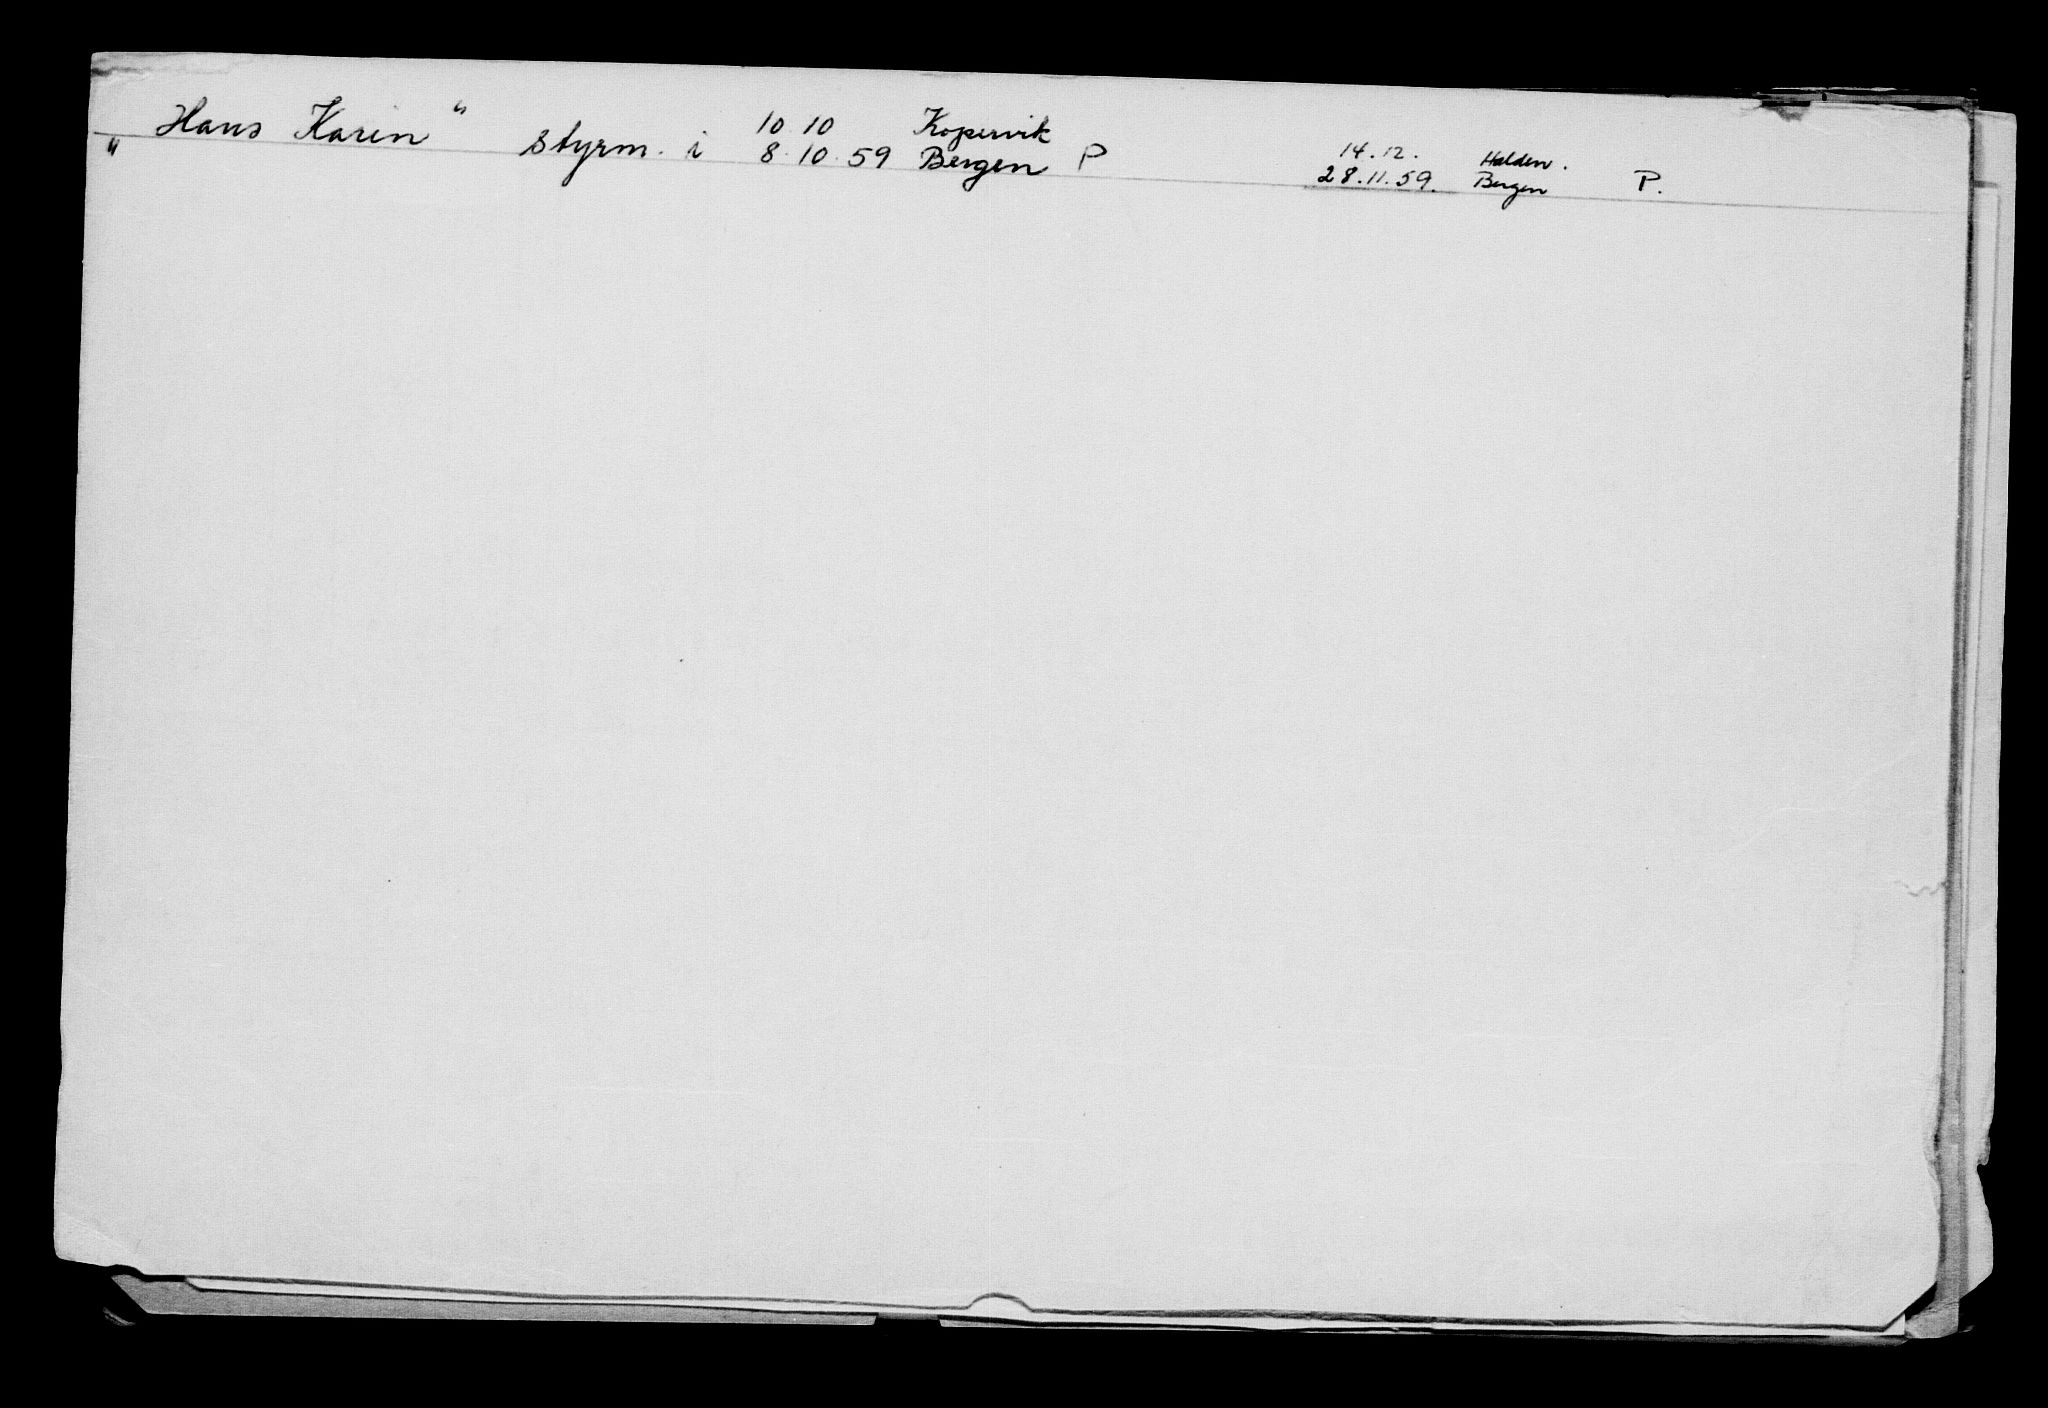 „ Hans Karin “ styrm. i 10 10 Kopervik 14.12. Halden.
8.10.59 Bergen P 28.11.59. Bergen P.